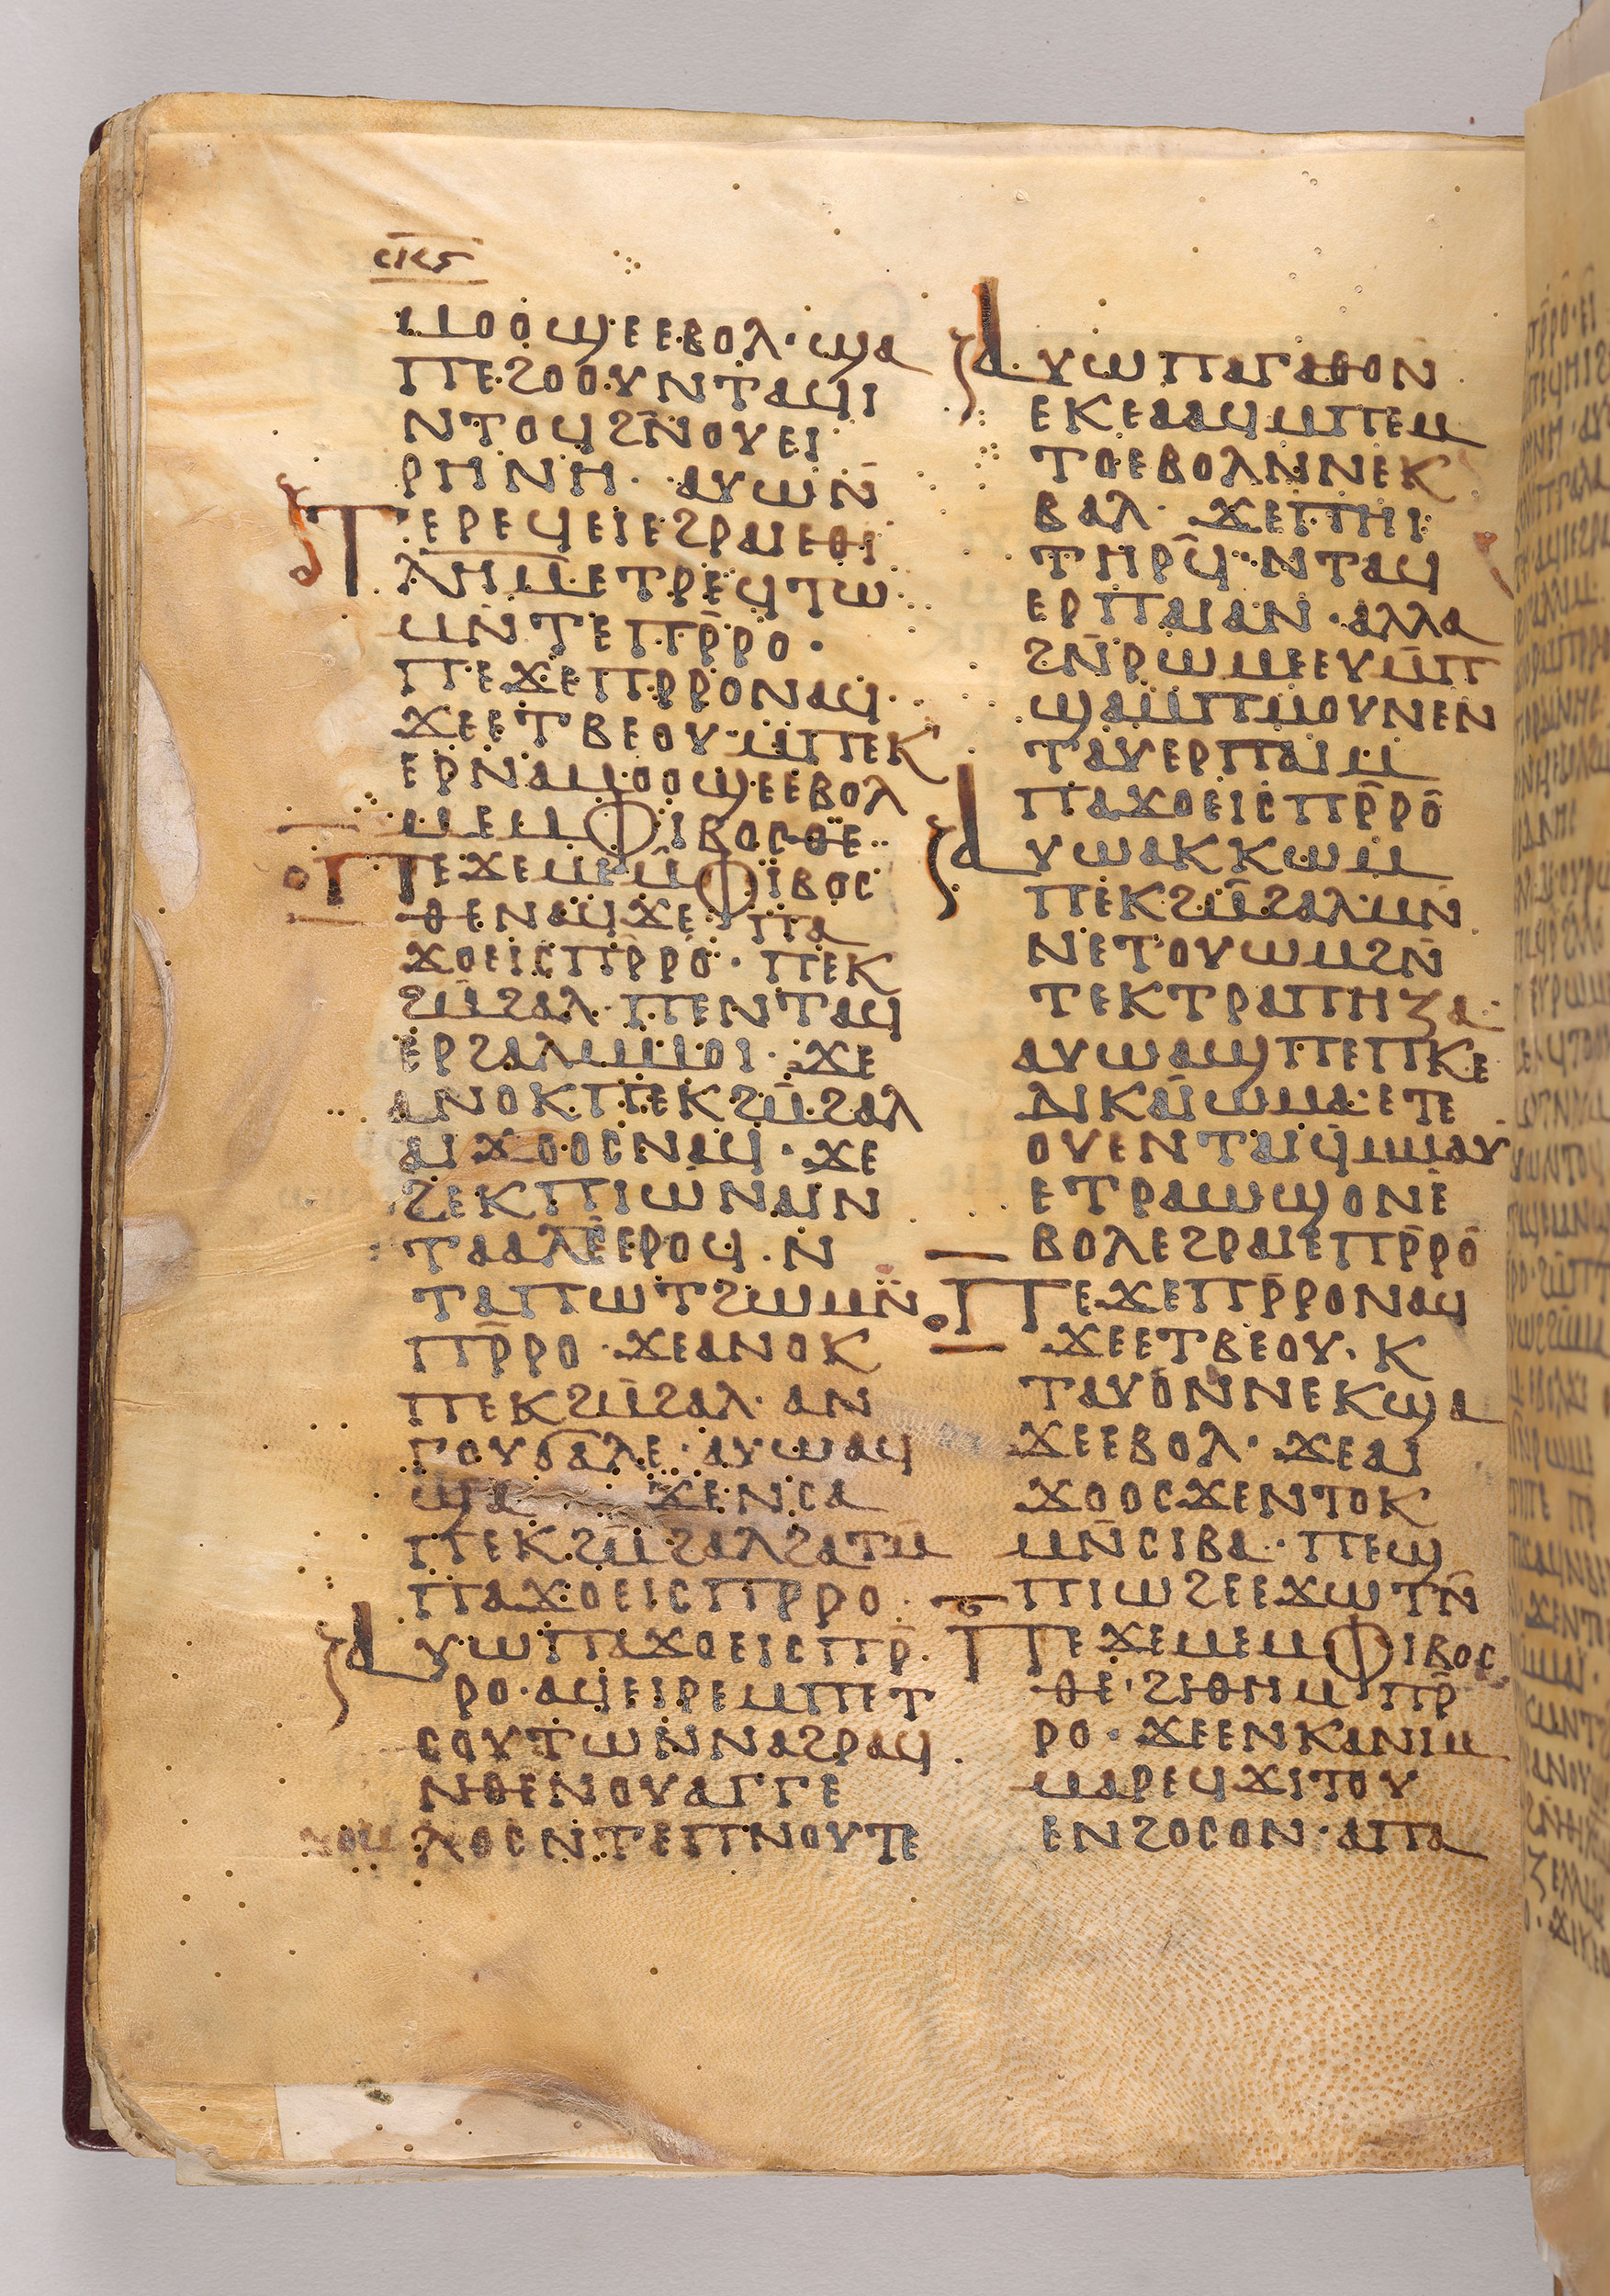 ⲥⲕⲋ
ⲙⲟⲟϣⲉⲉⲃⲟⲗ·ϣⲁ
ⲡⲉϩⲟⲟⲩⲛⲧⲁϥⲓ
ⲛⲧⲟϥϩⲛ̄ⲟⲩⲉⲓ
ⲣⲏⲛⲏ· ⲁⲩⲱⲛ̄
ⲧⲉⲣⲉϥⲉⲓⲉϩⲣⲁⲓⲉⲑⲓ
ⲗ̄ⲏ̄ⲙ̄ⲉⲧⲣⲉϥⲧⲱ
ⲙⲛ̄ⲧⲉⲡⲣ̄ⲣⲟ·
ⲡⲉϫⲉⲡⲣⲣⲟⲛⲁϥ·
ϫⲉⲉⲧⲃⲉⲟⲩ·ⲙⲡⲉⲕ
ⲉⲣⲛⲁⲙⲟⲟϣⲉⲉⲃⲟⲗ
ⲙⲉⲙⲫⲓⲃⲟⲥⲑⲉ·
ⲡⲉϫⲉⲙⲉⲙ̄ⲫⲓⲃⲟⲥ
ⲑⲉⲛⲁϥϫⲉ ⲡⲁ
ϫⲟⲉⲓⲥⲡⲣ̄ⲣⲟ· ⲡⲉⲕ
ϩⲙ̄ϩⲁⲗ·ⲡⲉⲛⲧⲁϥ
ⲉⲣϩⲁⲗⲙⲙⲟⲓ· ϫⲉ
ⲁⲛⲟⲕⲡⲉⲕϩⲙ̄ϩⲁⲗ
ⲁⲓϫⲟⲟⲥⲛⲁϥ· ϫⲉ
ϩⲉⲕⲡⲓⲱⲛⲁⲓⲛ
ⲧⲁⲁⲗⲉⲉⲣⲟϥ·ⲛ
ⲧⲁⲡⲱⲧϩⲱⲙⲛ̄
ⲡⲣ̄ⲣⲟ·ϫⲉⲁⲛⲟⲕ
ⲡⲉⲕϩⲙ̄ϩⲁⲗ· ⲁⲛ
ⲅⲟⲩϭⲁⲗⲉ·ⲁⲩⲱⲁϥ
ϣⲁ ϫⲉⲛⲥⲁ
ⲡⲉⲕϩⲙ̄ϩⲁⲗϩⲁⲧⲙ̄
ⲡⲁϫⲟⲉⲓⲥⲡⲣⲣⲟ·
ⲁⲩⲱⲡⲁϫⲟⲉⲓⲥⲡⲣ̄
ⲣⲟ·ⲁϥⲉⲓⲣⲉⲙⲡⲉⲧ
ⲥⲟⲩⲧⲱⲛⲛⲁϩⲣⲁϥ·
ⲛⲑⲉⲛⲟⲩⲁⲅⲅⲉ
ⲗⲟⲥⲛⲧⲉⲡⲛⲟⲩⲧⲉ
ⲁⲩⲱⲡⲁⲅⲁⲑⲟⲛ
ⲉⲕⲉⲁⲁϥⲙⲡⲉⲙ
ⲧⲟⲉⲃⲟⲗⲛⲛⲉⲕ
ⲃⲁⲗ· ϫⲉⲡⲏⲓ
ⲧⲏⲣϥ̄·ⲛⲧⲁϥ
ⲉⲣⲡⲁⲓⲁⲛ·ⲁⲗⲗⲁ
ϩⲛ̄ⲣⲱⲙⲉⲉⲩⲙ̄ⲡ
ϣⲁⲙⲡⲙⲟⲩⲛⲉⲛ
ⲧⲁⲩⲉⲣⲡⲁⲓⲙ
ⲡⲁϫⲟⲉⲓⲥⲡⲣ̄ⲣⲟ
ⲁⲩⲱⲁⲕⲕⲱⲙ
ⲡⲉⲕϩⲙ̄ϩⲁⲗ·ⲙⲛ
ⲛⲉⲧⲟⲩⲱⲙϩⲛ̄
ⲧⲉⲕⲧⲣⲁⲡⲏⲍⲁ·
ⲁⲩⲱⲁϣⲡⲉⲡⲕⲉ
ⲇⲓⲕⲁⲓⲱⲙⲁ·ⲉⲧⲉ
ⲟⲩⲉⲛⲧⲁⲓϥⲙⲙⲁⲩ
ⲉⲧⲣⲁⲱϣⲟⲛⲉ
ⲃⲟⲗⲉϩⲣⲁⲓⲉⲡⲣ̄ⲣⲟ
ⲡⲉϫⲉⲡⲣ̄ⲣⲟⲛⲁϥ
ϫⲉⲉⲧⲃⲉⲟⲩ· ⲕ
ⲧⲁⲩⲟⲛⲛⲉⲕϣⲁ
ϫⲉⲉⲃⲟⲗ· ϫⲉⲁⲓ
ϫⲟⲟⲥϫⲉⲛⲧⲟⲕ
ⲙⲛ̄ⲥⲓⲃⲁ·ⲡⲉϣ
ⲡⲓⲱϩⲉⲉϫⲱⲧⲛ̄
ⲡⲉϫⲉⲙⲉⲙⲫⲓⲃⲟⲥ
ⲑⲉ·ϩⲓⲑⲏⲙ ⲡⲣ̄
ⲣⲟ· ϫⲉⲉⲛⲕⲁⲛⲓⲙ
ⲙⲁⲣⲉϥϫⲓⲧⲟⲩ
ⲉⲛϩⲟⲥⲟⲛ·ⲁⲡⲁ